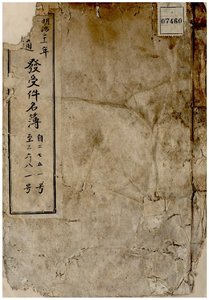 明治二十一年
通
發受件名簿
自二七五一号
至三六八一号
07460